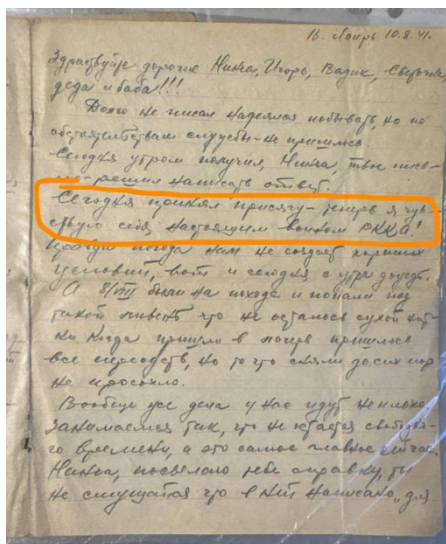 В. Лагерь 10.8.41.
Здравствуйте дорогие Нинка, Игорь, Вадик, Светочка,
деда и баба!!!
Долго не писал надеялся побывать, но по
обстоятельствам службы не пришлось.
Сегодня утром получил, Нинка, твое пись-
мо решил написать ответ.
Сегодня принял присягу - теперь я чув-
ствую себя настоящим воином РККА!
погода нам не создает хороших
условий, вот и сегодня с утра дождь.
А 8/VIII были на походе и попали под
такой ливень что не осталось сухой нит-
ки. Когда пришли в лагерь пришлось
все переодеть, но то что сняли до сих пор
не просохло.
Вообще же дела у нас идут не плохо
занимаемся так, что не остается свободно-
го времени, а это самое главное сейчас.
Нинка, посылаю тебе справку, ты
не смущайся что в ней написано „для